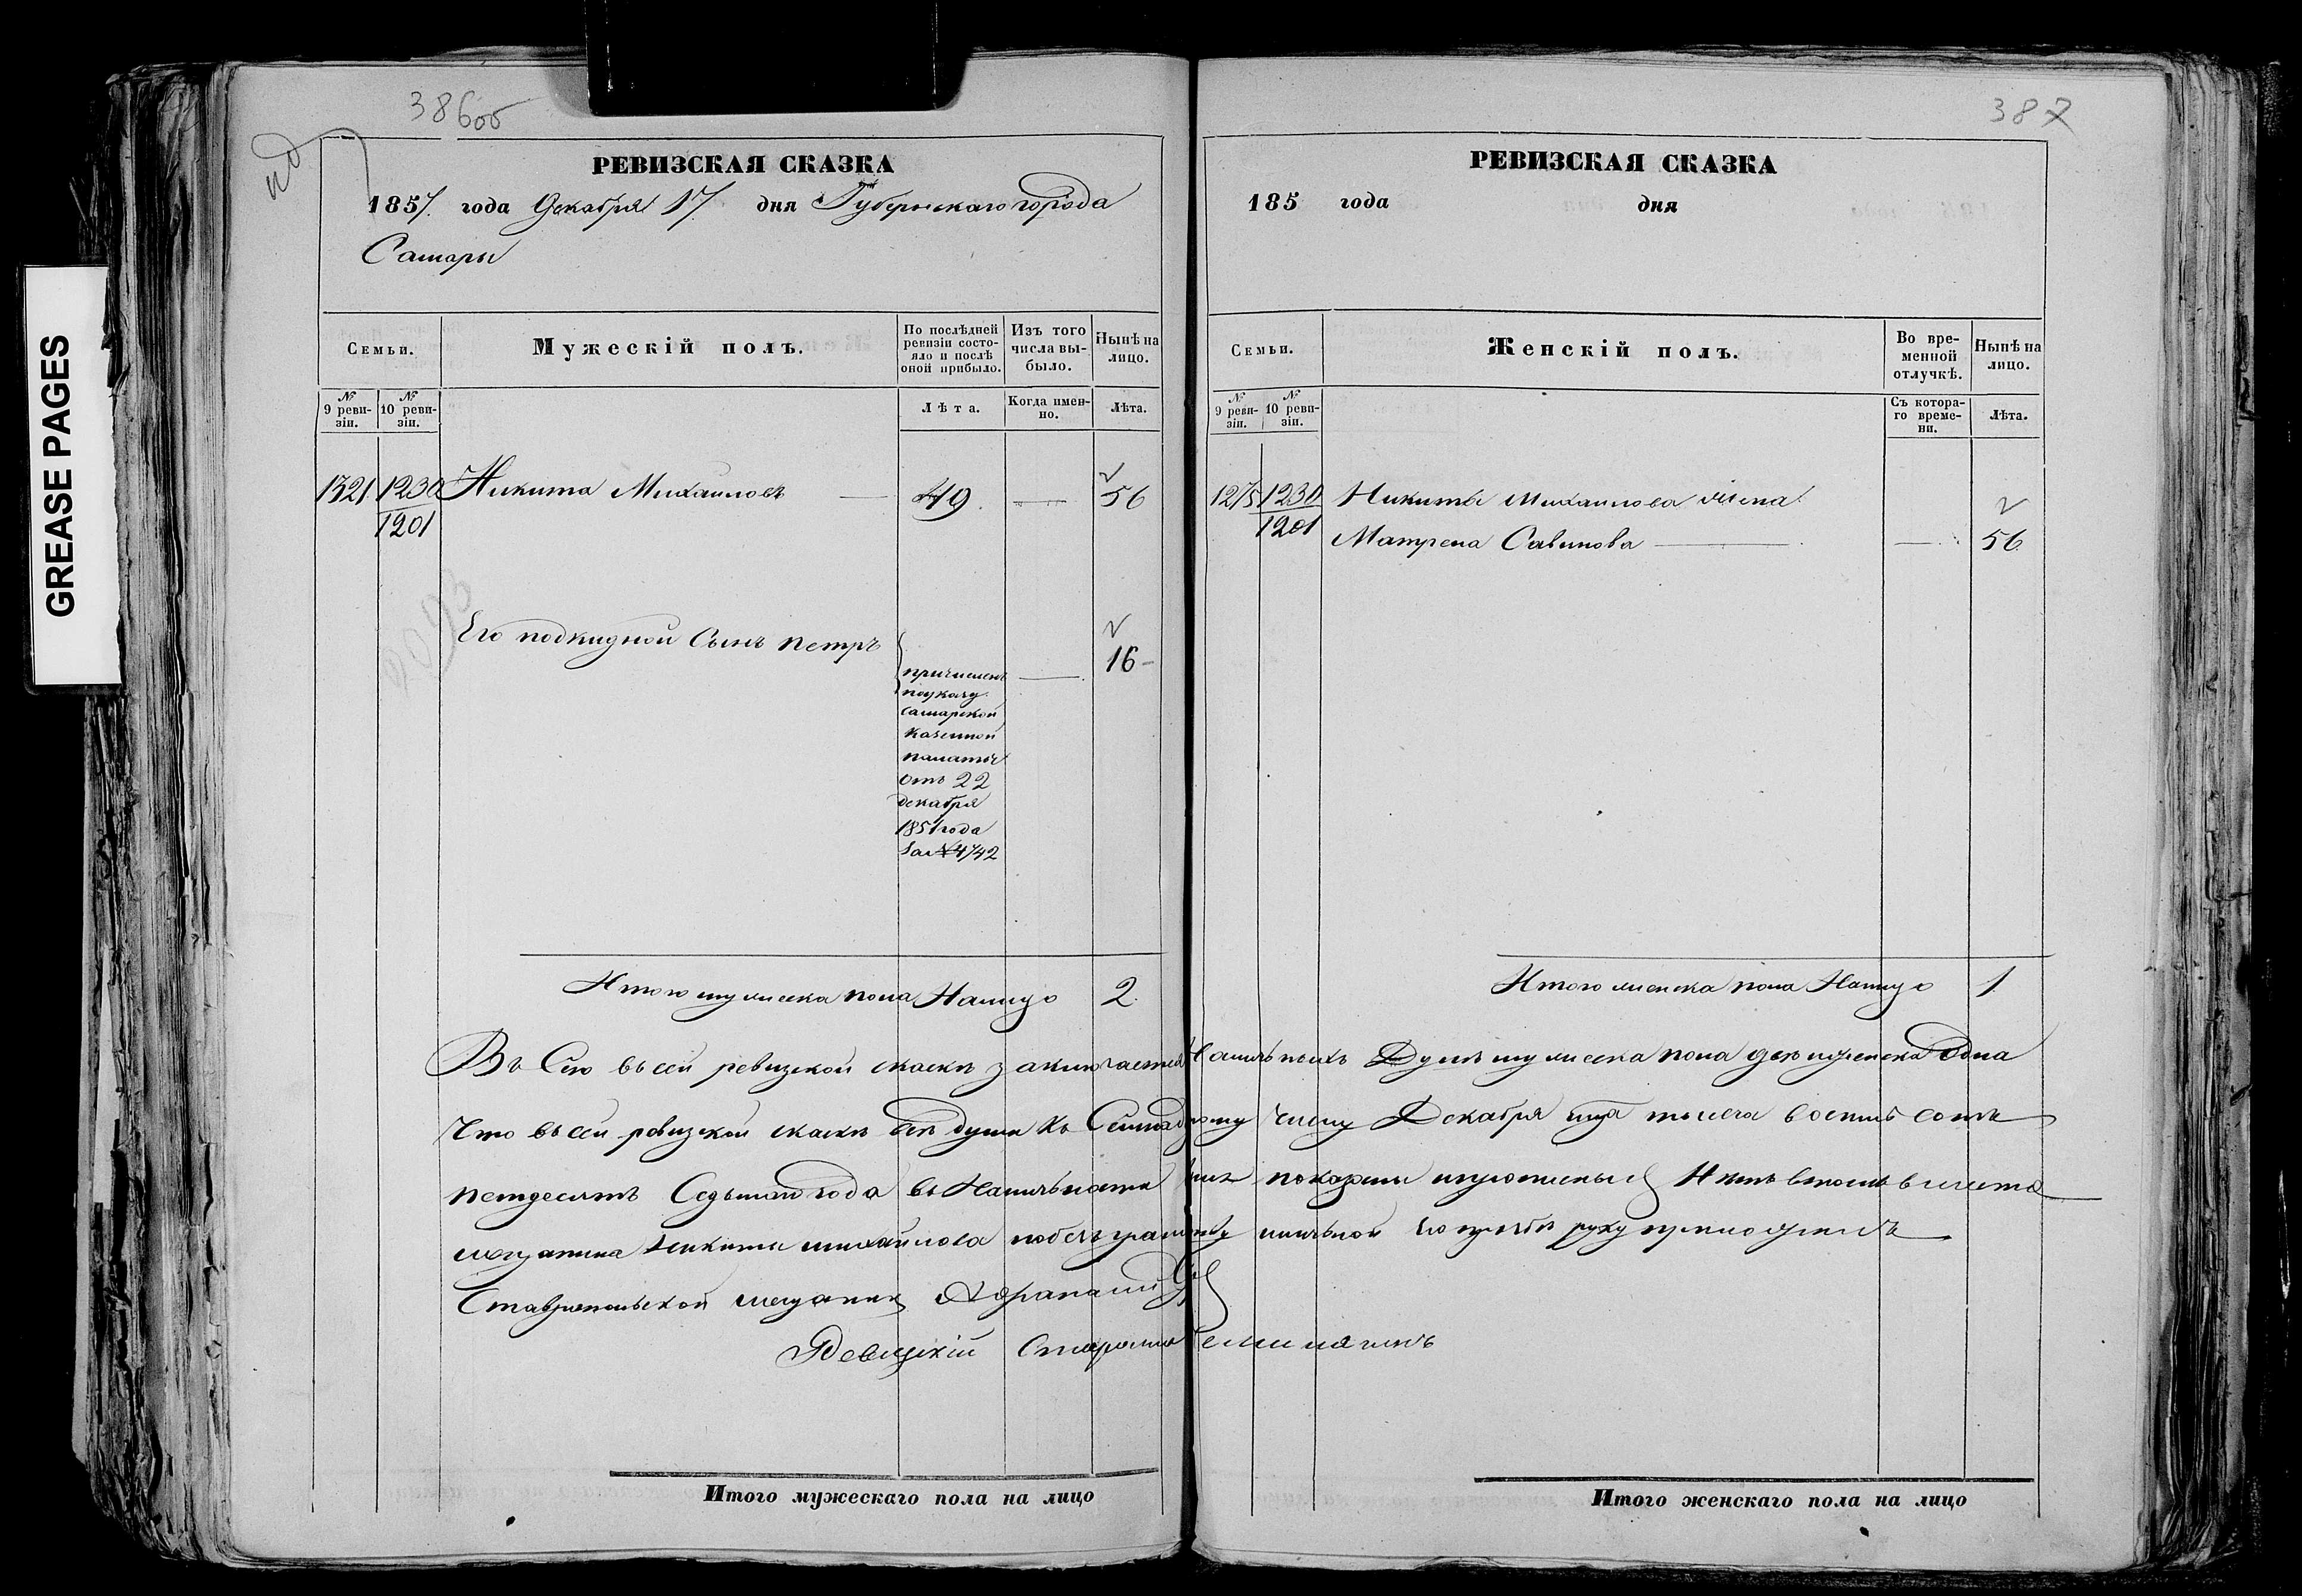 GREASE PAGES
386об
РЕВИЗСКАЯ СКАЗКА
1857. года Декабря 17 дня Губернскаго города
Самары
Семьи.
Мужескій полъ.
По послѣдней ревизіи состо-
яло и послѣ
оной прибыло.
Изъ того
числа вы-
было.
Нынѣ на
лицо.
№
9 реви-
зіи.
№
10 реви-
зіи.
Лѣта.
Когда имен-
но.
Лѣта.
1321 1230 Никита Михаиловъ 49. 56
1201
Его подкидной Сынъ петръ 16
причисленъ
поуказу
самарской
казенной
палаты
отъ 22
декабря
1851 года
за № 4742
Итого мужеска пола Налицо 2.
387
РЕВИЗСКАЯ СКАЗКА
185 года дня
Семьи.
Женскій полъ.
Во вре-
менной
отлучкѣ.
Нынѣ на
лицо.
№
9 реви-
зіи.
№
10 реви-
зіи.
Съ котора-
го време-
ни.
Лѣта.
1275 1230 Никиты Михаилова жена
1201 Матрена Савинова 56
Итого женска пола Налицо 1.
въ сей ревизкой скаскѣ заключается Наличныхъ Душъ мужеска пола двѣ и женска Одна
Что въ сей ревизкой скаскѣ всѣ души къ числу Декабря тысеча восемь сотъ
петдесятъ Седьмаго года въ показаны
мещанина Никиты михайлова личьной Его прозбѣ руку приложилъ
Ставропольской мещанинъ
староста
Итого мужескаго пола на лицо
Итого женскаго пола на лицо